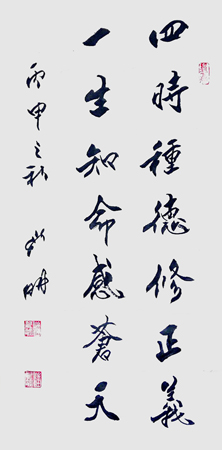 四時種德修正義
一生知命感蒼天
丙申之秋